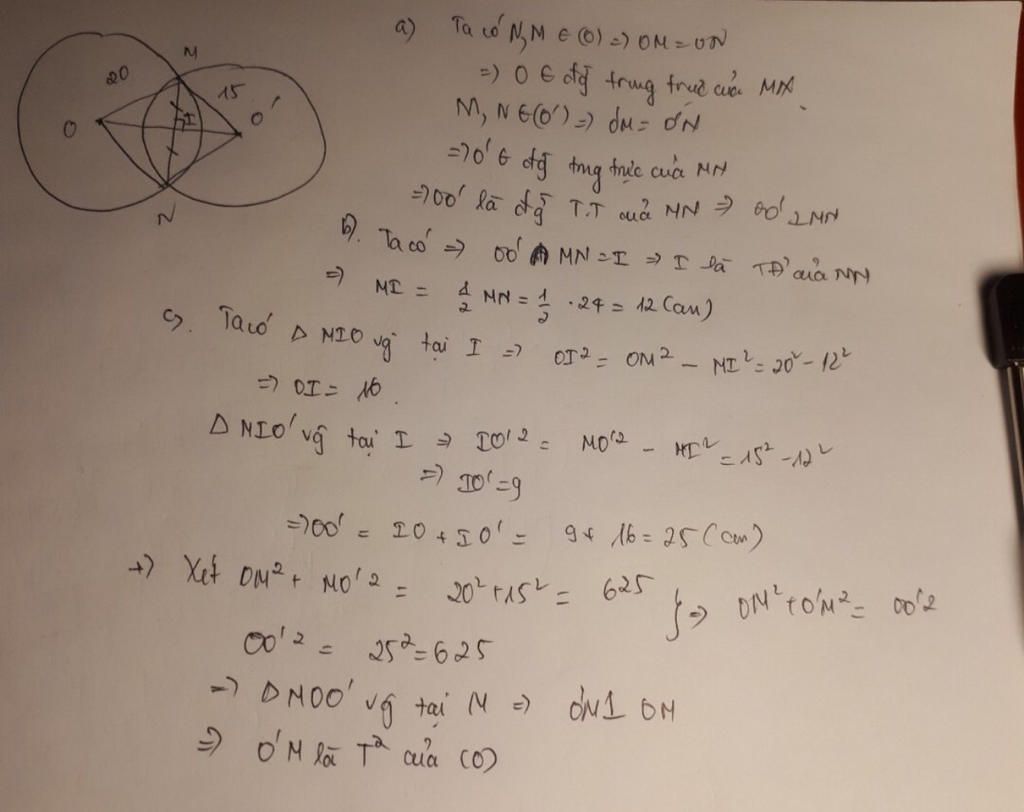 M
20
15
O
I
O'
N
a) Ta có N,M ∈ (O) => OM = ON
=> O ∈ đg̃ trung trực của MN
M, N ∈ (O') => O'M = O'N
=> O' ∈ đg̃ trng trực của MN
=> OO' là đg̃ T.T của MN => OO' ⊥ MN
b). Ta có => OO' ∩ MN = I => I là TĐ' của MN
=> MI = 1/2 MN = 1/2 . 24 = 12 (cm)
c). Ta có Δ MIO vg̃ tại I => OI² = OM² - MI² = 20² - 12²
=> OI = 16.
Δ MIO' vg̃ tại I => IO'² = MO'² - MI² = 15² - 12²
=> IO' = 9
=> OO' = IO + IO' = 9 + 16 = 25 (cm)
+) Xét OM² + MO'² = 20² + 15² = 625 } => OM² + O'M² = OO'²
OO'² = 25² = 625
=> Δ MOO' vg̃ tại M => O'M ⊥ OM
=> O'M là T² của (O)